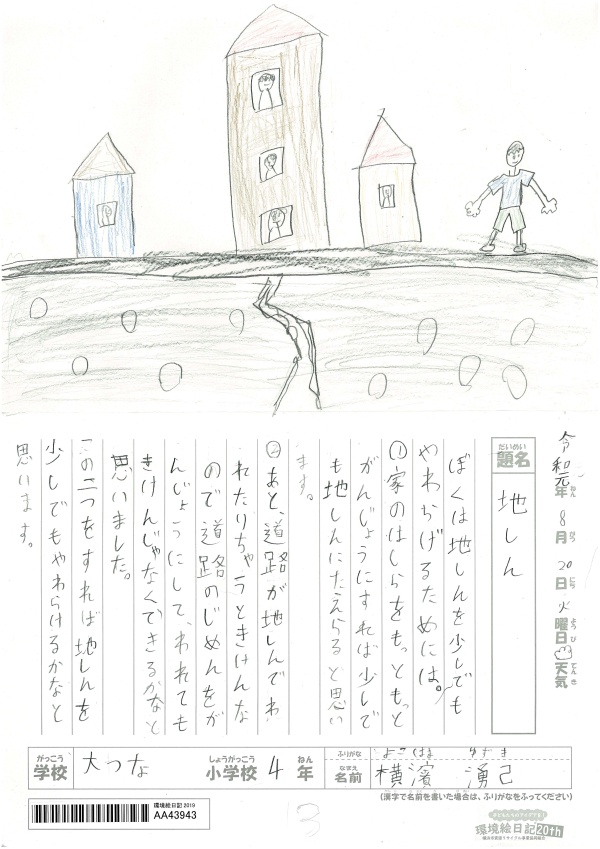 令和元年8月20日火曜日天気
ねん がつ にち ようび てんき
だいめい
題名
地しん
ぼくは地しんを少しでも
やわらげるためには。
①家のはしらをもっともっと
がんじょうにすれば少しで
も地しんにたえらると思い
ます。
②あと、道路が地しんでわ
れたりちゃうときけんな
ので道路のじめんをが
んじょうにして、われても
きけんじゃなくできるかなと
思いました。
この二つをすれば地しんを
少しでもやわらけるかなと
思います。
がっこう
学校
大つな
しょうがっこう
小学校
4
ねん
年
ふりがな
よこはま ゆずき
なまえ
名前
横濱 湧己
(漢字で名前を書いた場合は、ふりがなをふってください)
環境絵日記2019
AA43943
13
環境絵日記20th